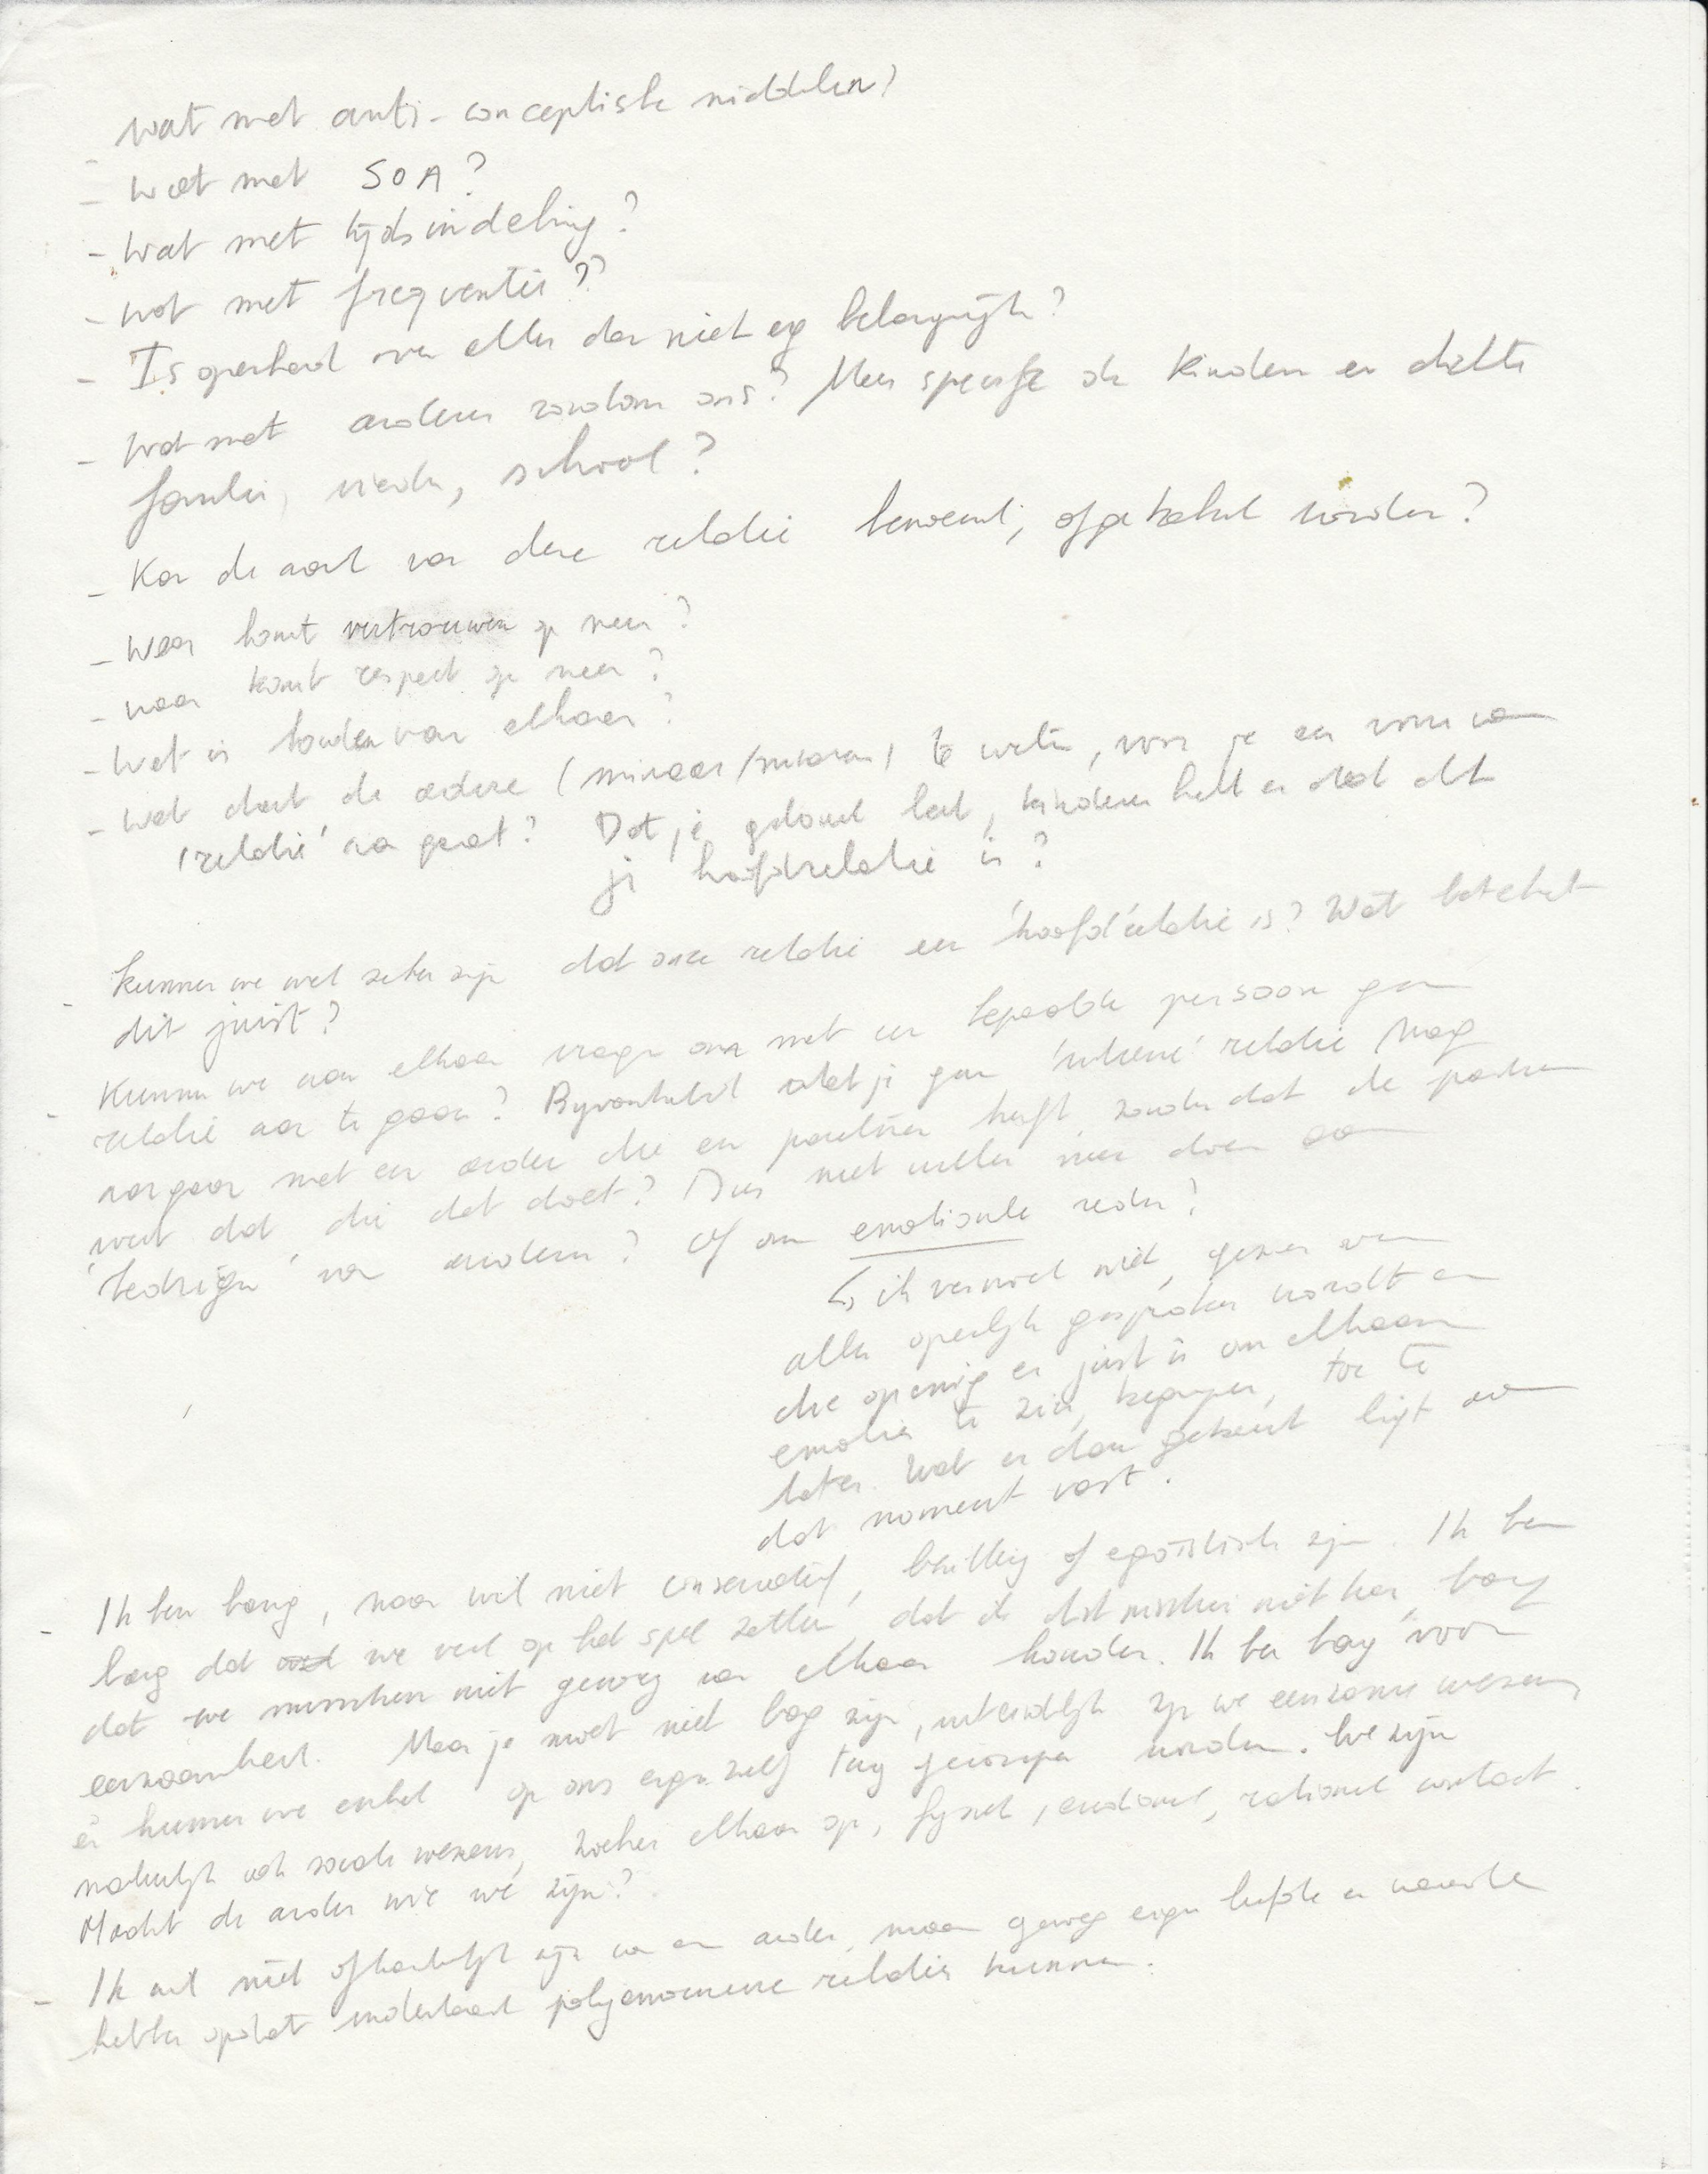 - wat met anti-conceptische middelen?
- Wat met SOA?
- Wat met tijdsindeling?
- Wat met frequentie??
- Is openheid over alles dan niet erg belangrijk?
- Wat met anderen rondom ons? Meer specifiek de kinderen en dichte
familie, vrienden, school?
- Kan de aard van deze relatie benoemd, afgebakend worden?
- Waar komt vertrouwen op neer?
- waar komt respect op neer?
- Wat is houden van elkaar?
- Wat dient de andere (minnaar/minnares) te weten, voor je een vorm van
'relatie' aan gaat? Dat je getrouwd bent, kinderen hebt en dat dit
je hoofdrelatie is?
- Kunnen we wel zeker zijn dat onze relatie een 'hoofd'relatie is? Wat betekent
dit juist?
- Kunnen we aan elkaar vragen om met een bepaalde persoon geen
relatie aan te gaan? Bijvoorbeeld dat je geen 'intieme' relatie mag
aangaan met een ander die een partner heeft zonder dat de partner
weet dat die dat doet? Dus niet willen mee doen aan
'bedriegen' van anderen? Of om emotionele reden?
↳ ik vermoed niet, gezien over
alles openlijk gesproken wordt en
die opening er juist is om elkaars
emoties te zien, begrijpen, toe te
laten. Wat er dan gebeurt ligt op
dat moment vast.
- Ik ben bang, maar wil niet conservatief, of egoïstisch zijn. Ik ben
bang dat we veel op het spel zetten, dat ik dit misschien niet kan, bang
dat we misschien niet genoeg van elkaar houden. Ik ben bang voor
eenzaamheid. Maar je moet niet bang zijn, uiteindelijk zijn we eenzame wezens
en kunnen we enkel op ons eigen zelf terug geworpen worden. We zijn
natuurlijk ook sociale wezens, zoeken elkaar op, fysiek, emotioneel, rationeel contact.
Maakt de ander wie we zijn?
- Ik wil niet afhankelijk zijn van een ander, maar genoeg eigen liefde en waarde
hebben opdat inderdaad polyamoureuze relaties kunnen.